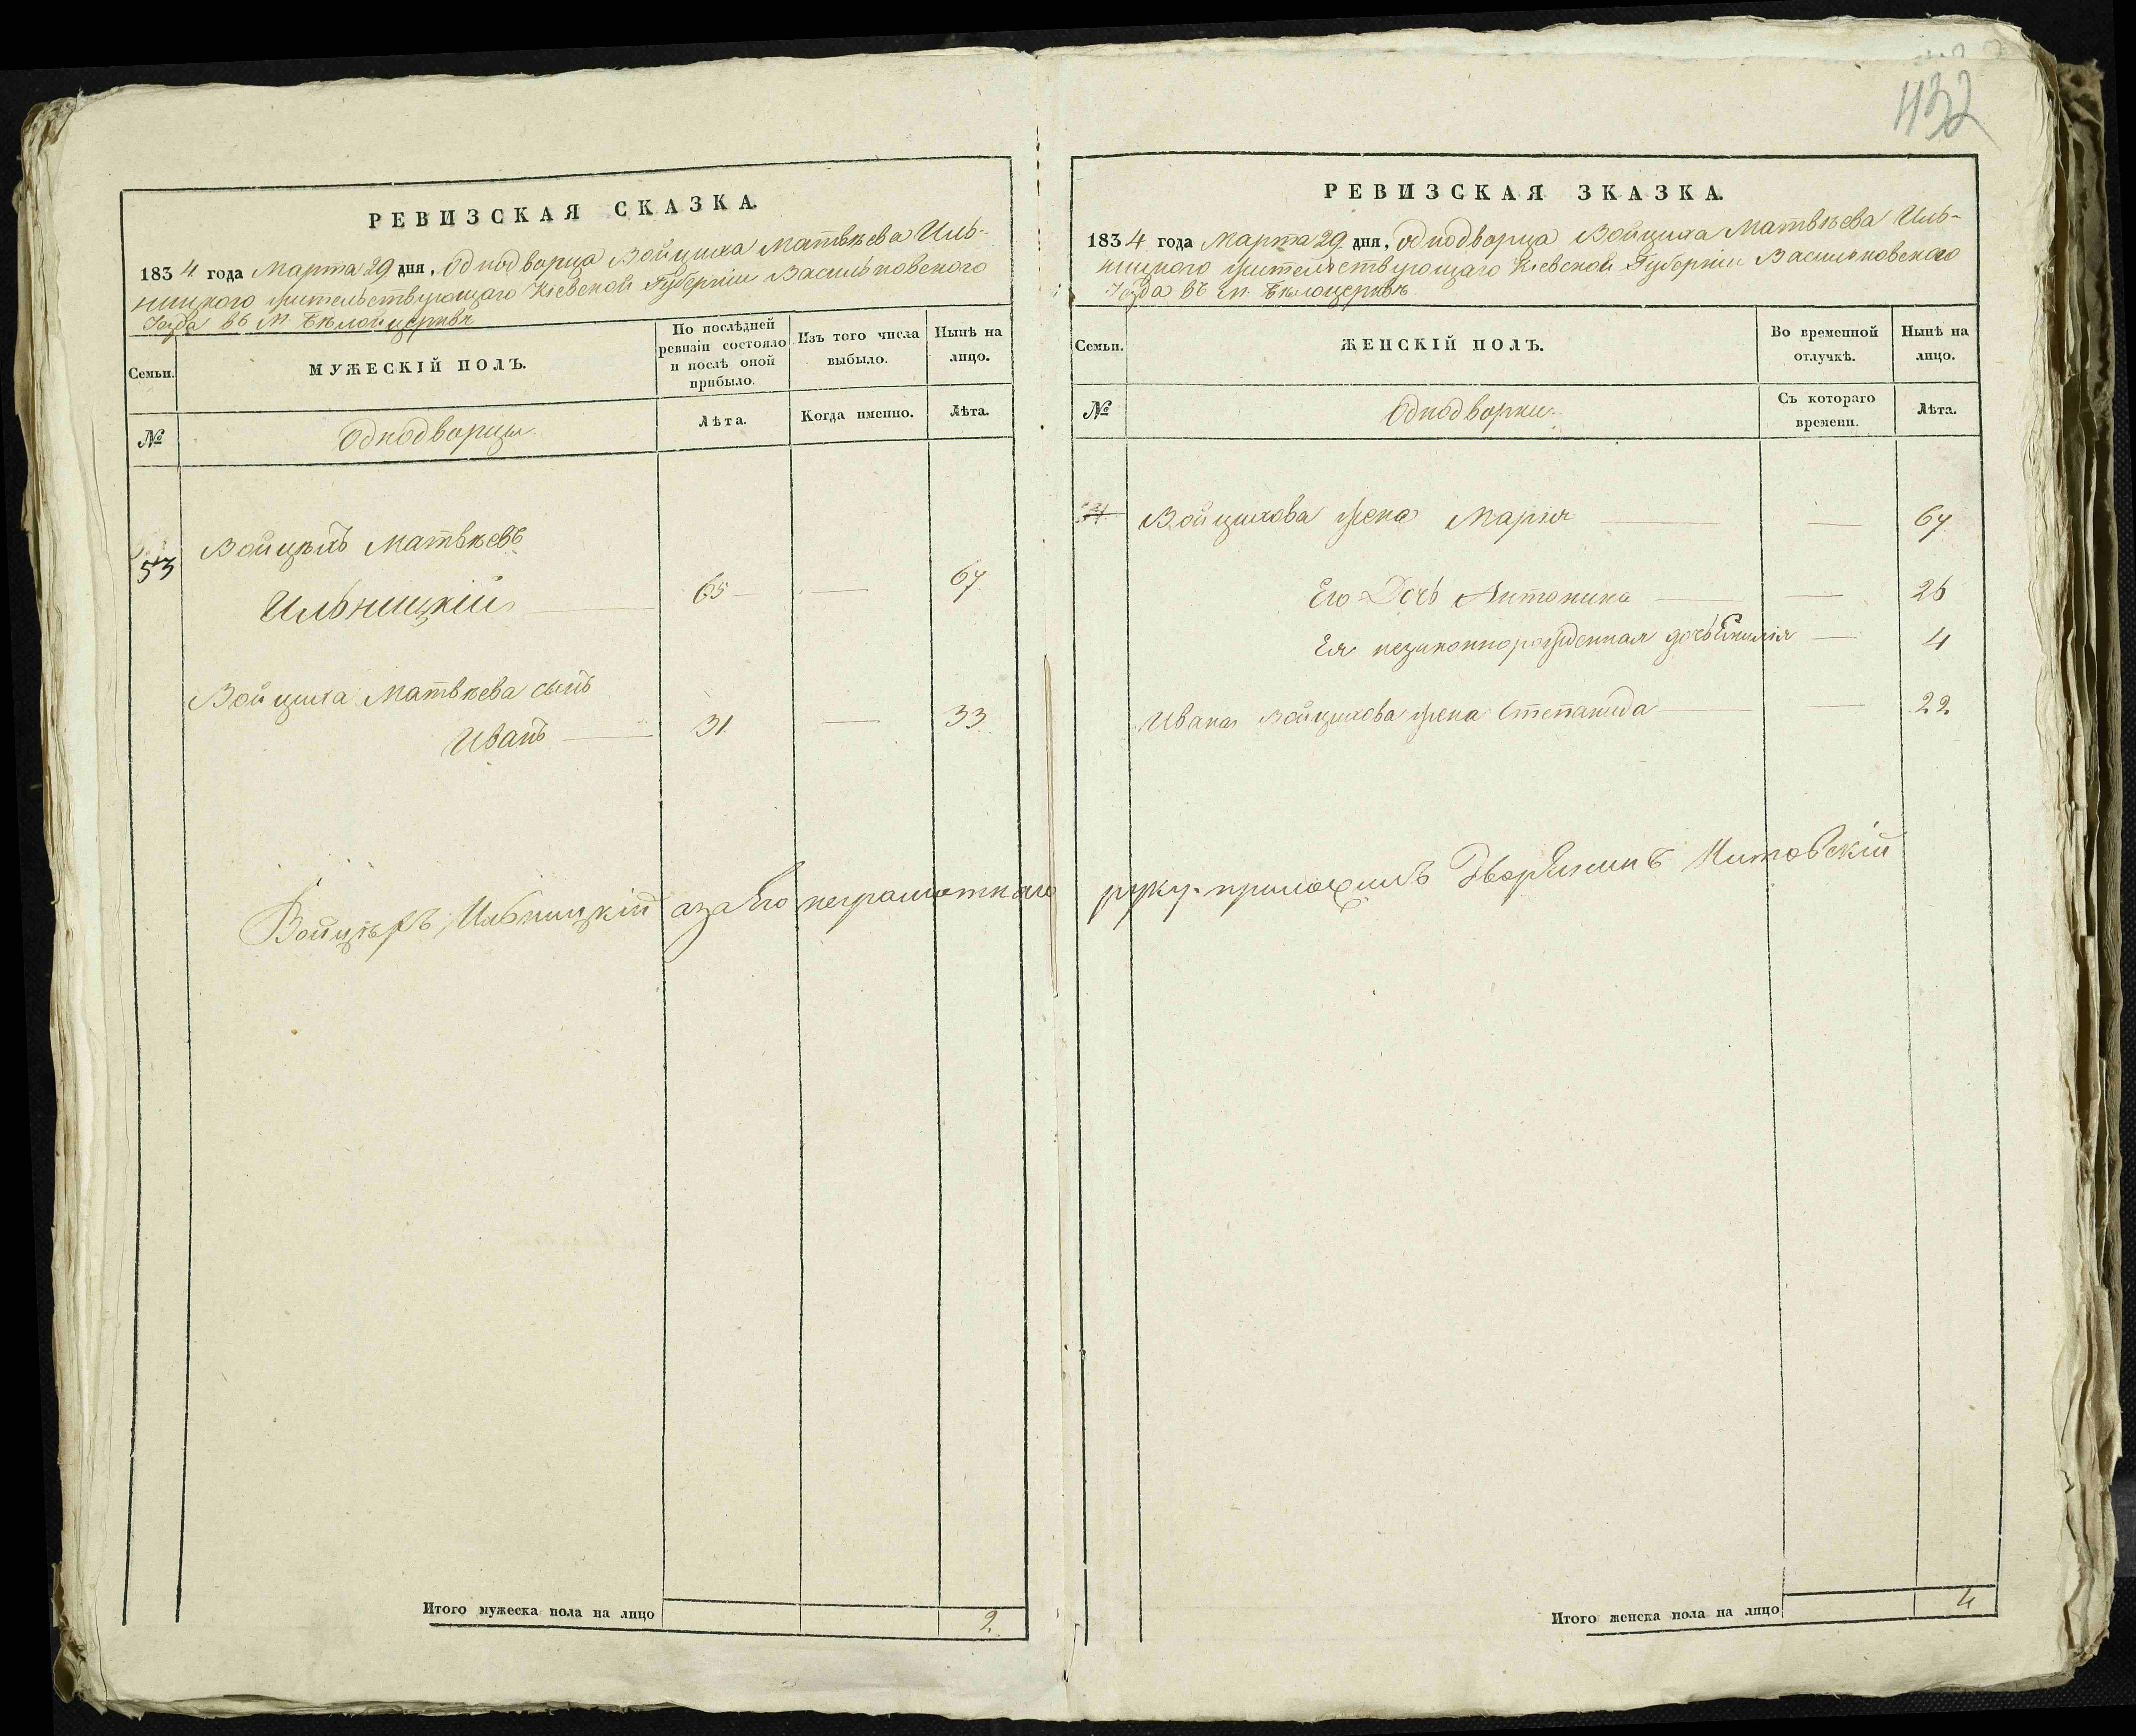 432
РЕВИЗСКАЯ СКАЗКА.
1834 года Марта 29 дня, Однодворца Войциха Матвѣева Иль-
ницкого жительствующаго Кіевской Губерніи Васильковского
Уезда въ м. Бѣлойцерквѣ
Семьи.
МУЖЕСКІЙ ПОЛЪ.
По послѣдней ревизіи состояло и послѣ оной прибыло.
Изъ того числа выбыло.
Нынѣ на лицо.
№
Однодворцы
Лѣта.
Когда именно.
Лѣта.
53
Войцѣхъ Матвѣевъ
Ильницкій 65 67
Войциха Матвѣева сынъ
Иванъ 31. 33
Войцѣхъ Ильницкій а за Его неграмотнаго
Итого мужеска пола на лицо 2.
РЕВИЗСКАЯ ЗКАЗКА.
1834 года Марта 29 дня, однодворца Войциха Матвѣева Иль-
ницкого жительствующаго Кіевской Губерніи Васильковского
Уезда въ м. Бѣлоцерквѣ
Семьи.
ЖЕНСКІЙ ПОЛЪ.
Во временной отлучкѣ.
Нынѣ на лицо.
№
Однодворки
Съ котораго времени.
Лѣта.
Войцихова жена Марія 67
Его Дочь Антонина 26
Ея незаконнорожденная дочь 4
Ивана Войцихова жена Степанида 22.
руку приложилъ Дворянинъ
Итого женска пола на лицо 4